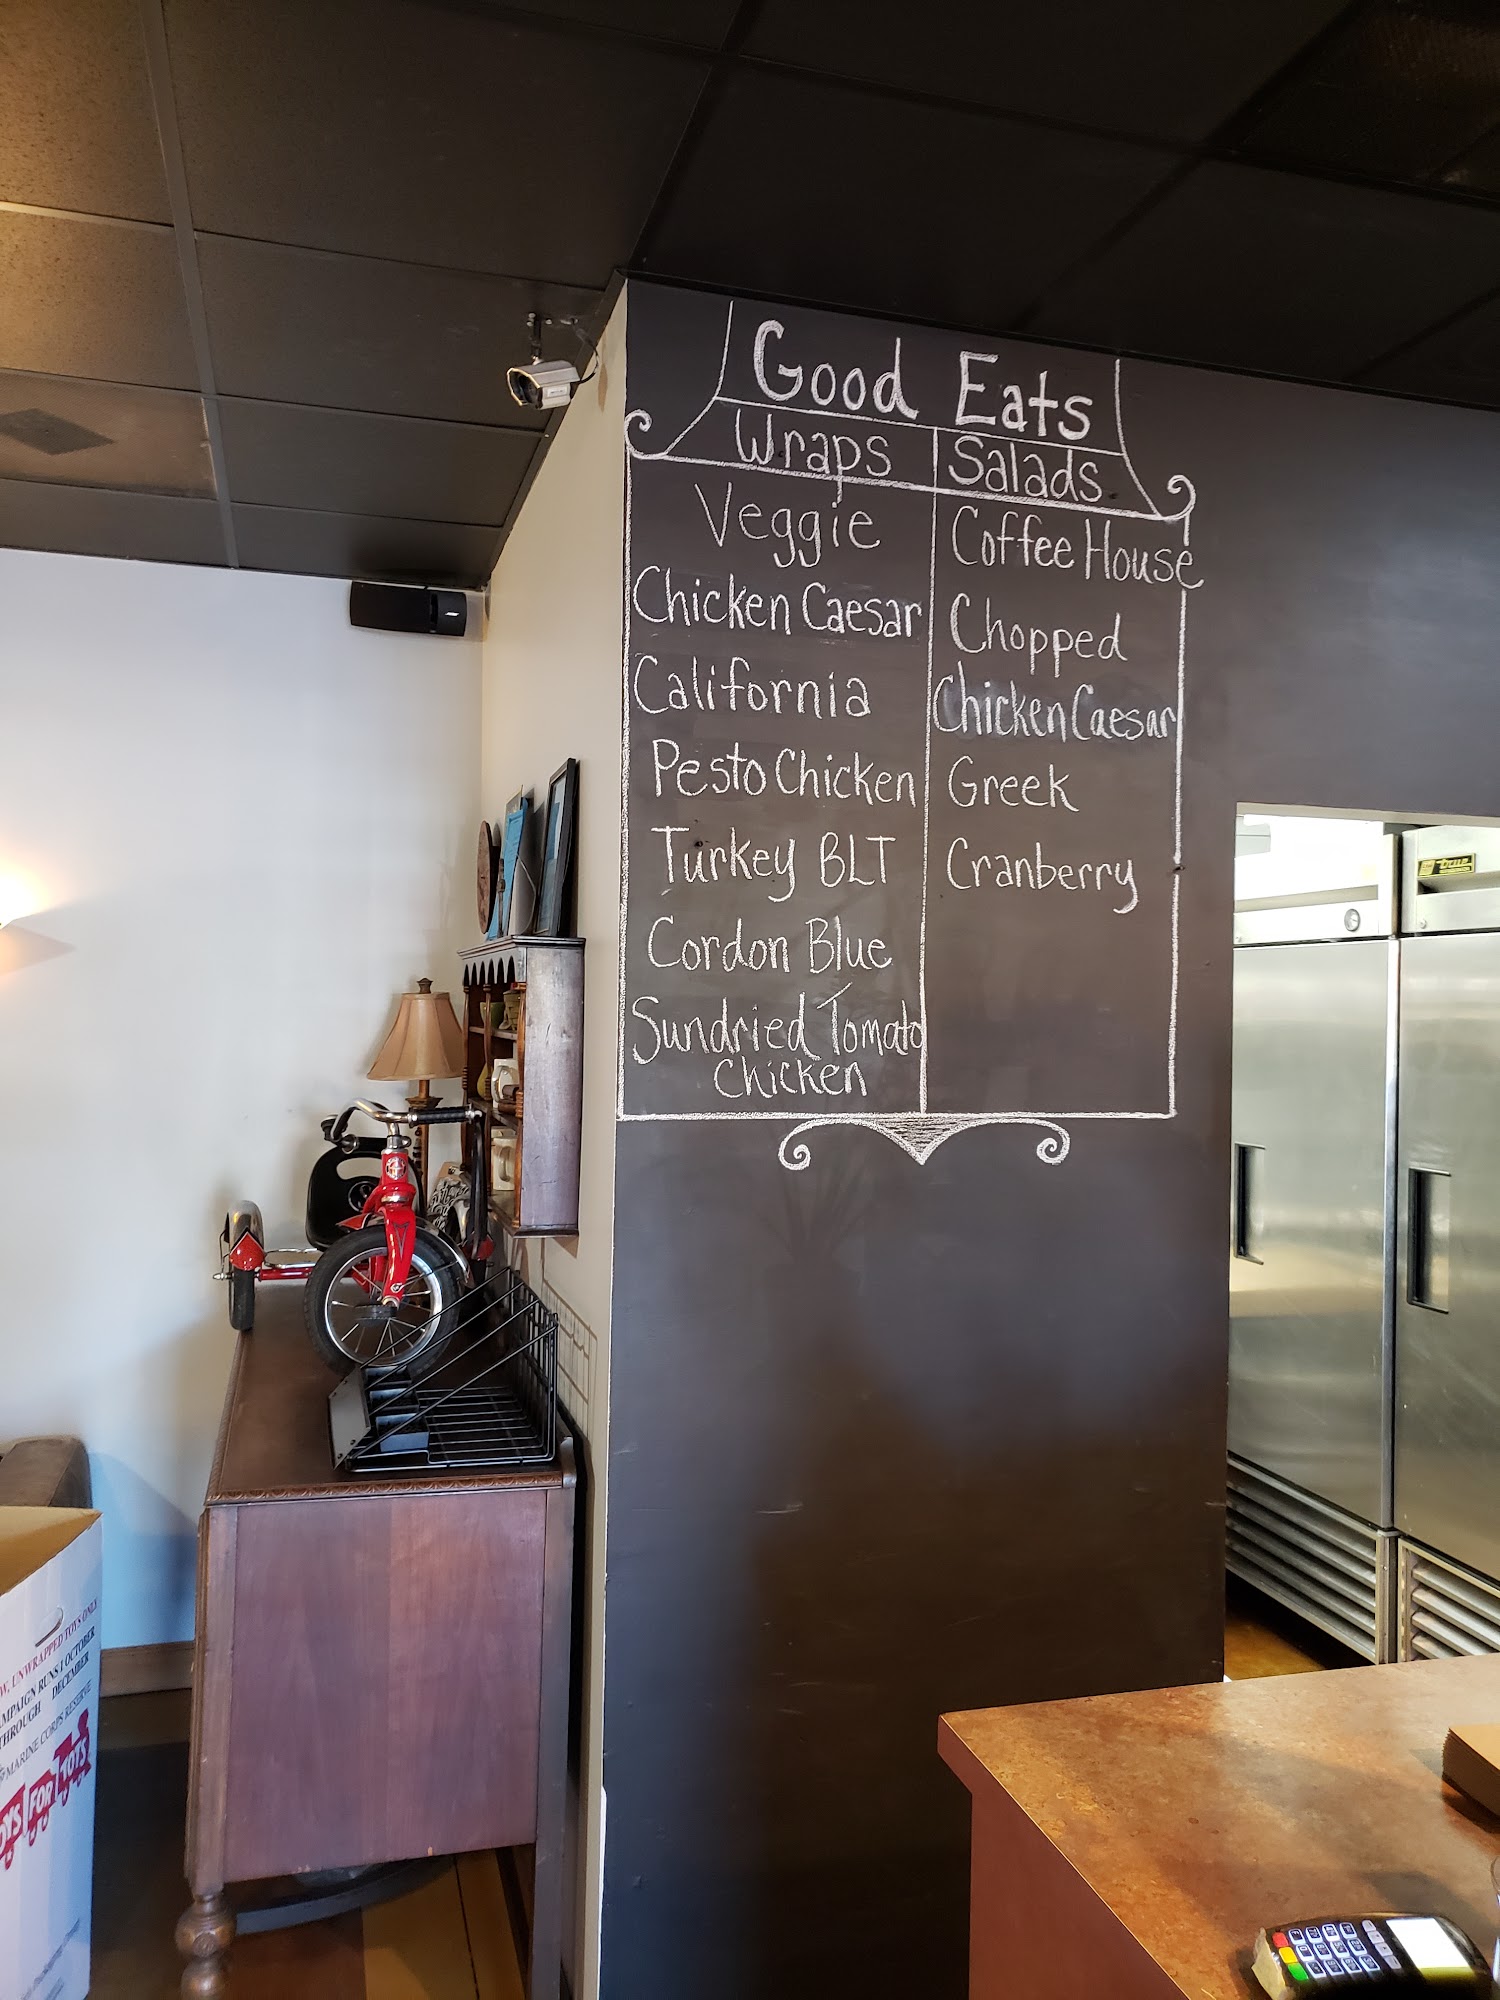 Good Eats
Wraps
Veggie
Chicken Caesar
California
Pesto Chicken
Turkey BLT
Cordon Blue
Sundried Tomato
Chicken
Salads
Coffee House
Chopped
Chicken Caesar
Greek
Cranberry
true
UNWRAPPED TOYS ONLY
RUNS 1 OCTOBER
THROUGH DECEMBER
MARINE CORPS RESERVE
FOR TOYS